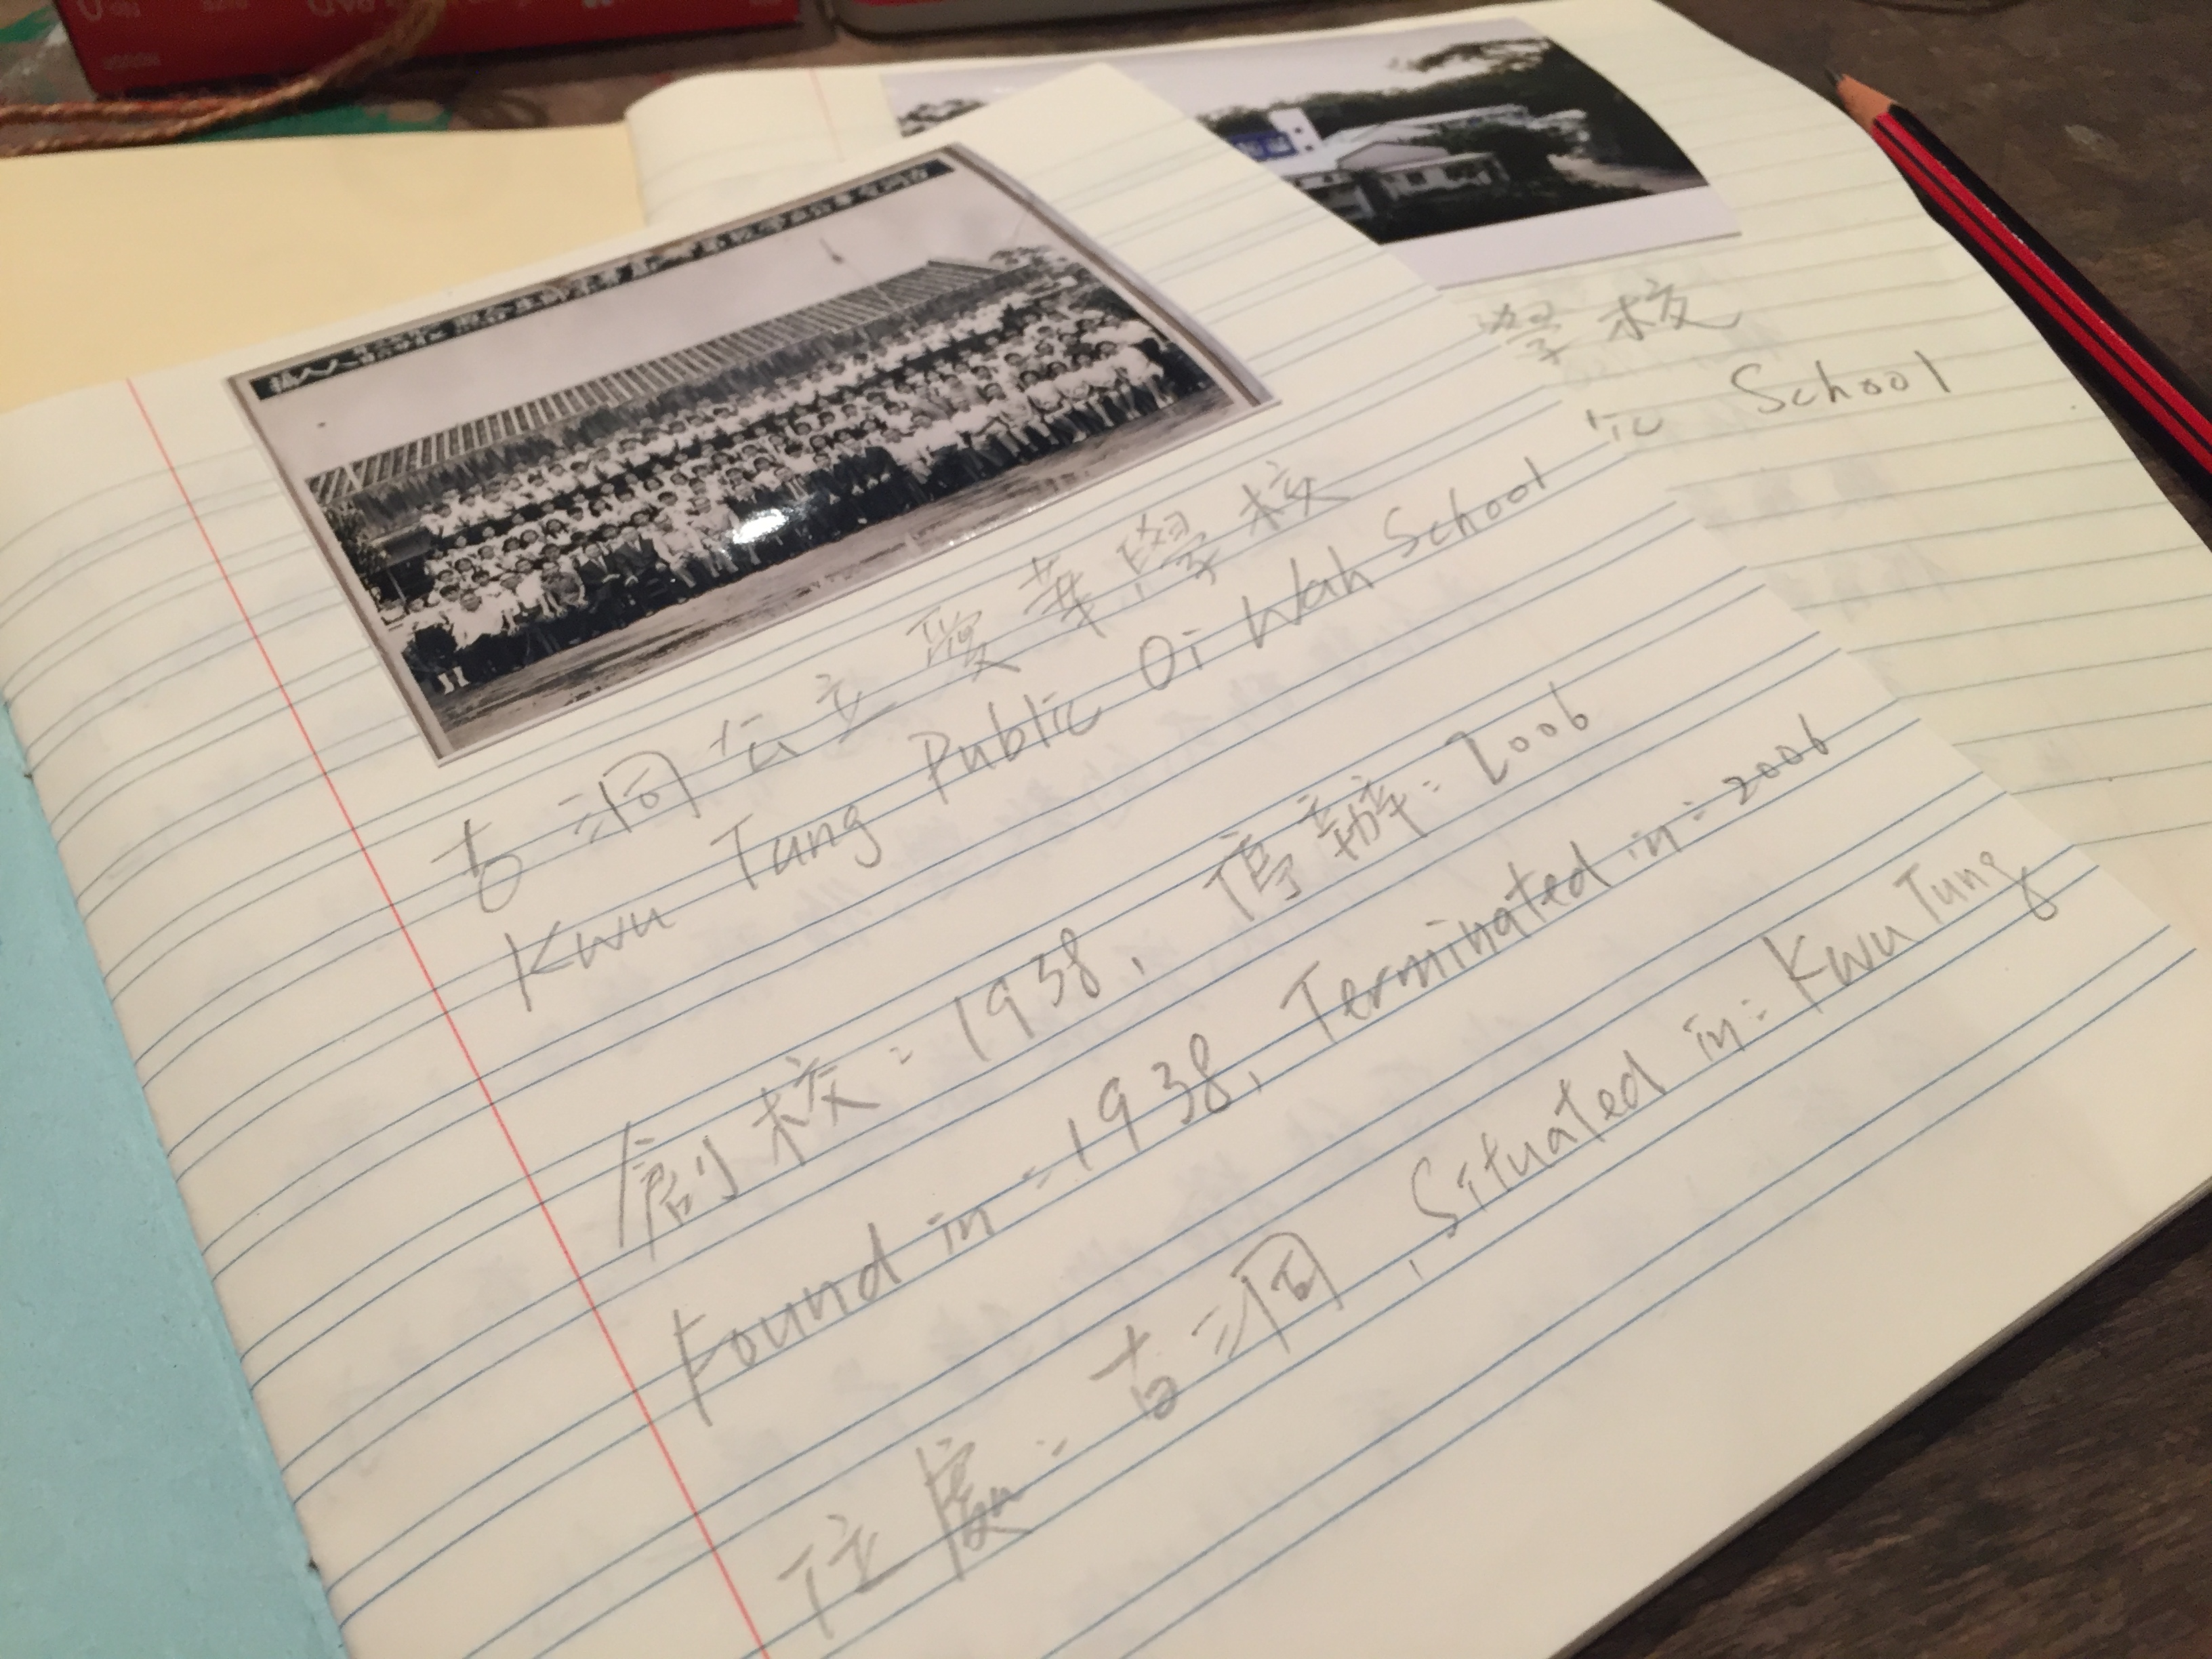 古洞公立愛華學校
Kwu Tung Public Oi Wah School
創校：1938, 停辦：2006
Found in：1938, Terminated in：2006
位處：古洞, Situated in：Kwu Tung
學校
ic School